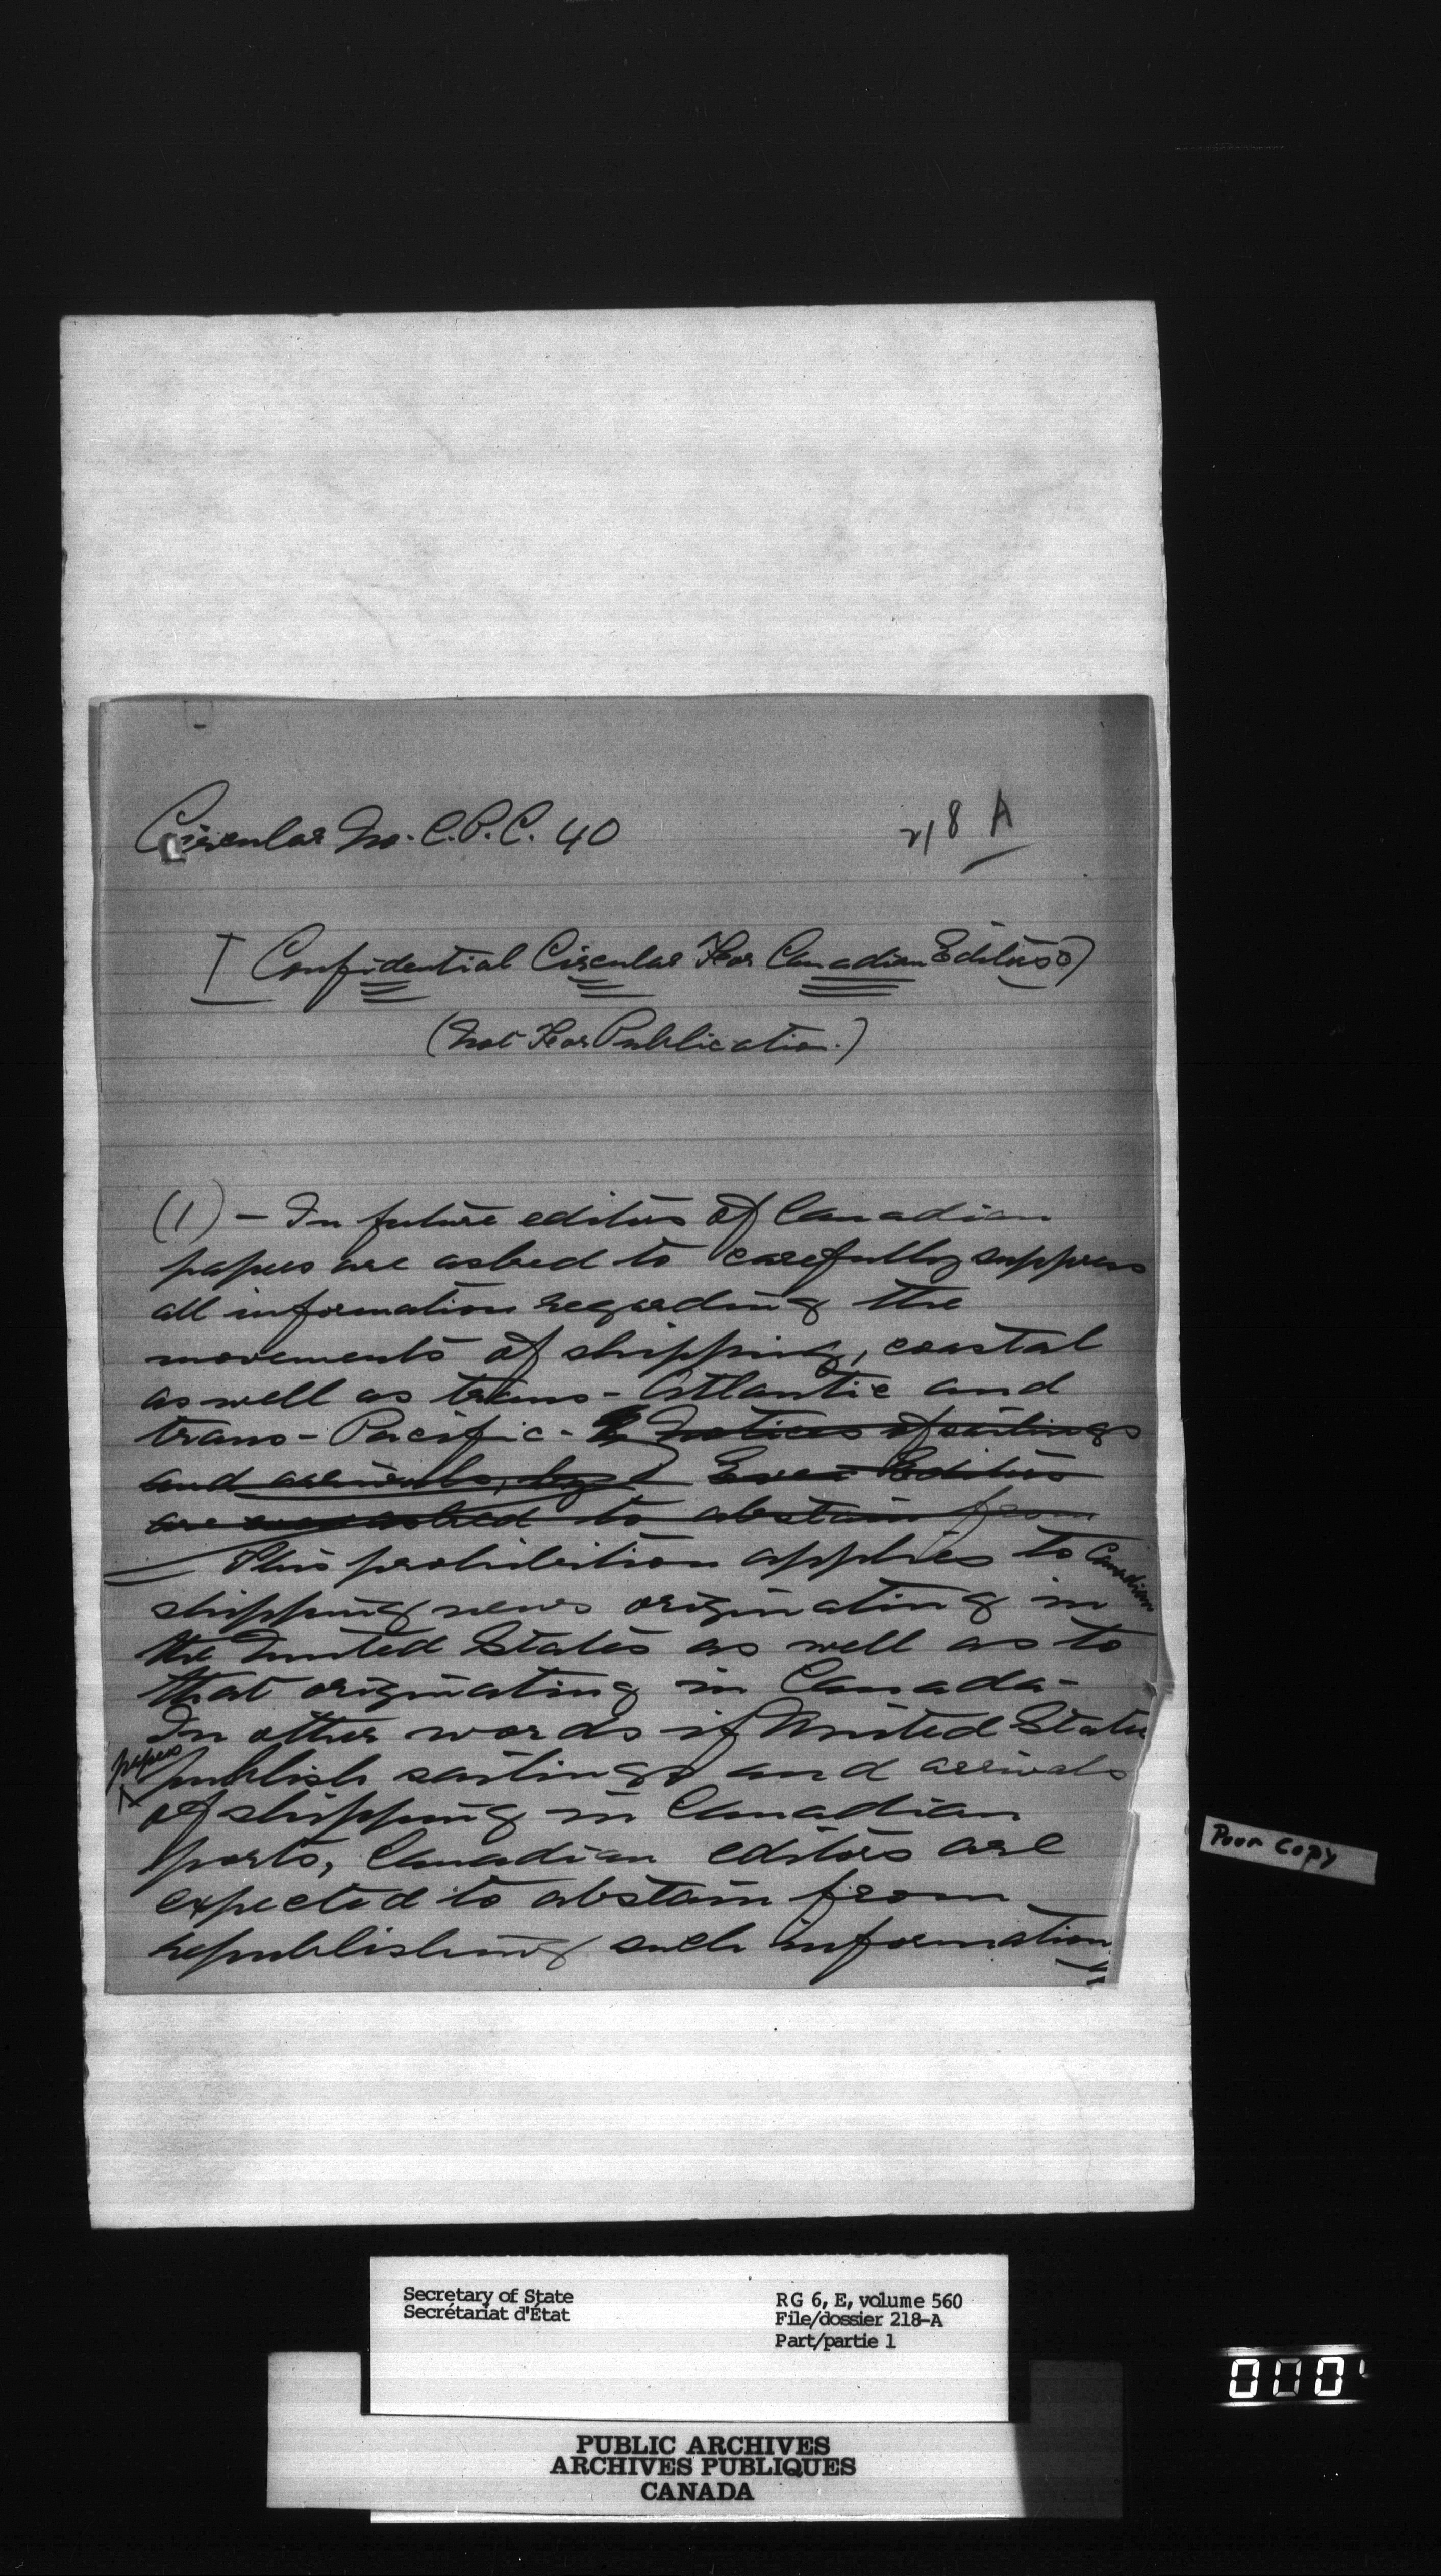 Circular No. C.P.C. 40
218 A
Confidential Circular For Canadian Editors
(Not For Publication.)
(1) - In future editors of Canadian
papers are asked to carefully suppress
all information regarding the
movements of shipping, coastal
as well as trans-Atlantic and
trans-Pacific - Notices of sailings
and arrivals, Editors
are asked to abstain from
This prohibition applies to Canadian
shipping news originating in
the United States as well as to
that originating in Canada -
In other words if United States
papers
publish sailings and arrivals
of shipping in Canadian
ports, Canadian editors are
expected to abstain from
republishing such information
Poor Copy
Secretary of State
Secrétariat d'État
RG 6, E, volume 560
File/dossier 218-A
Part/partie 1
000
PUBLIC ARCHIVES
ARCHIVES PUBLIQUES
CANADA